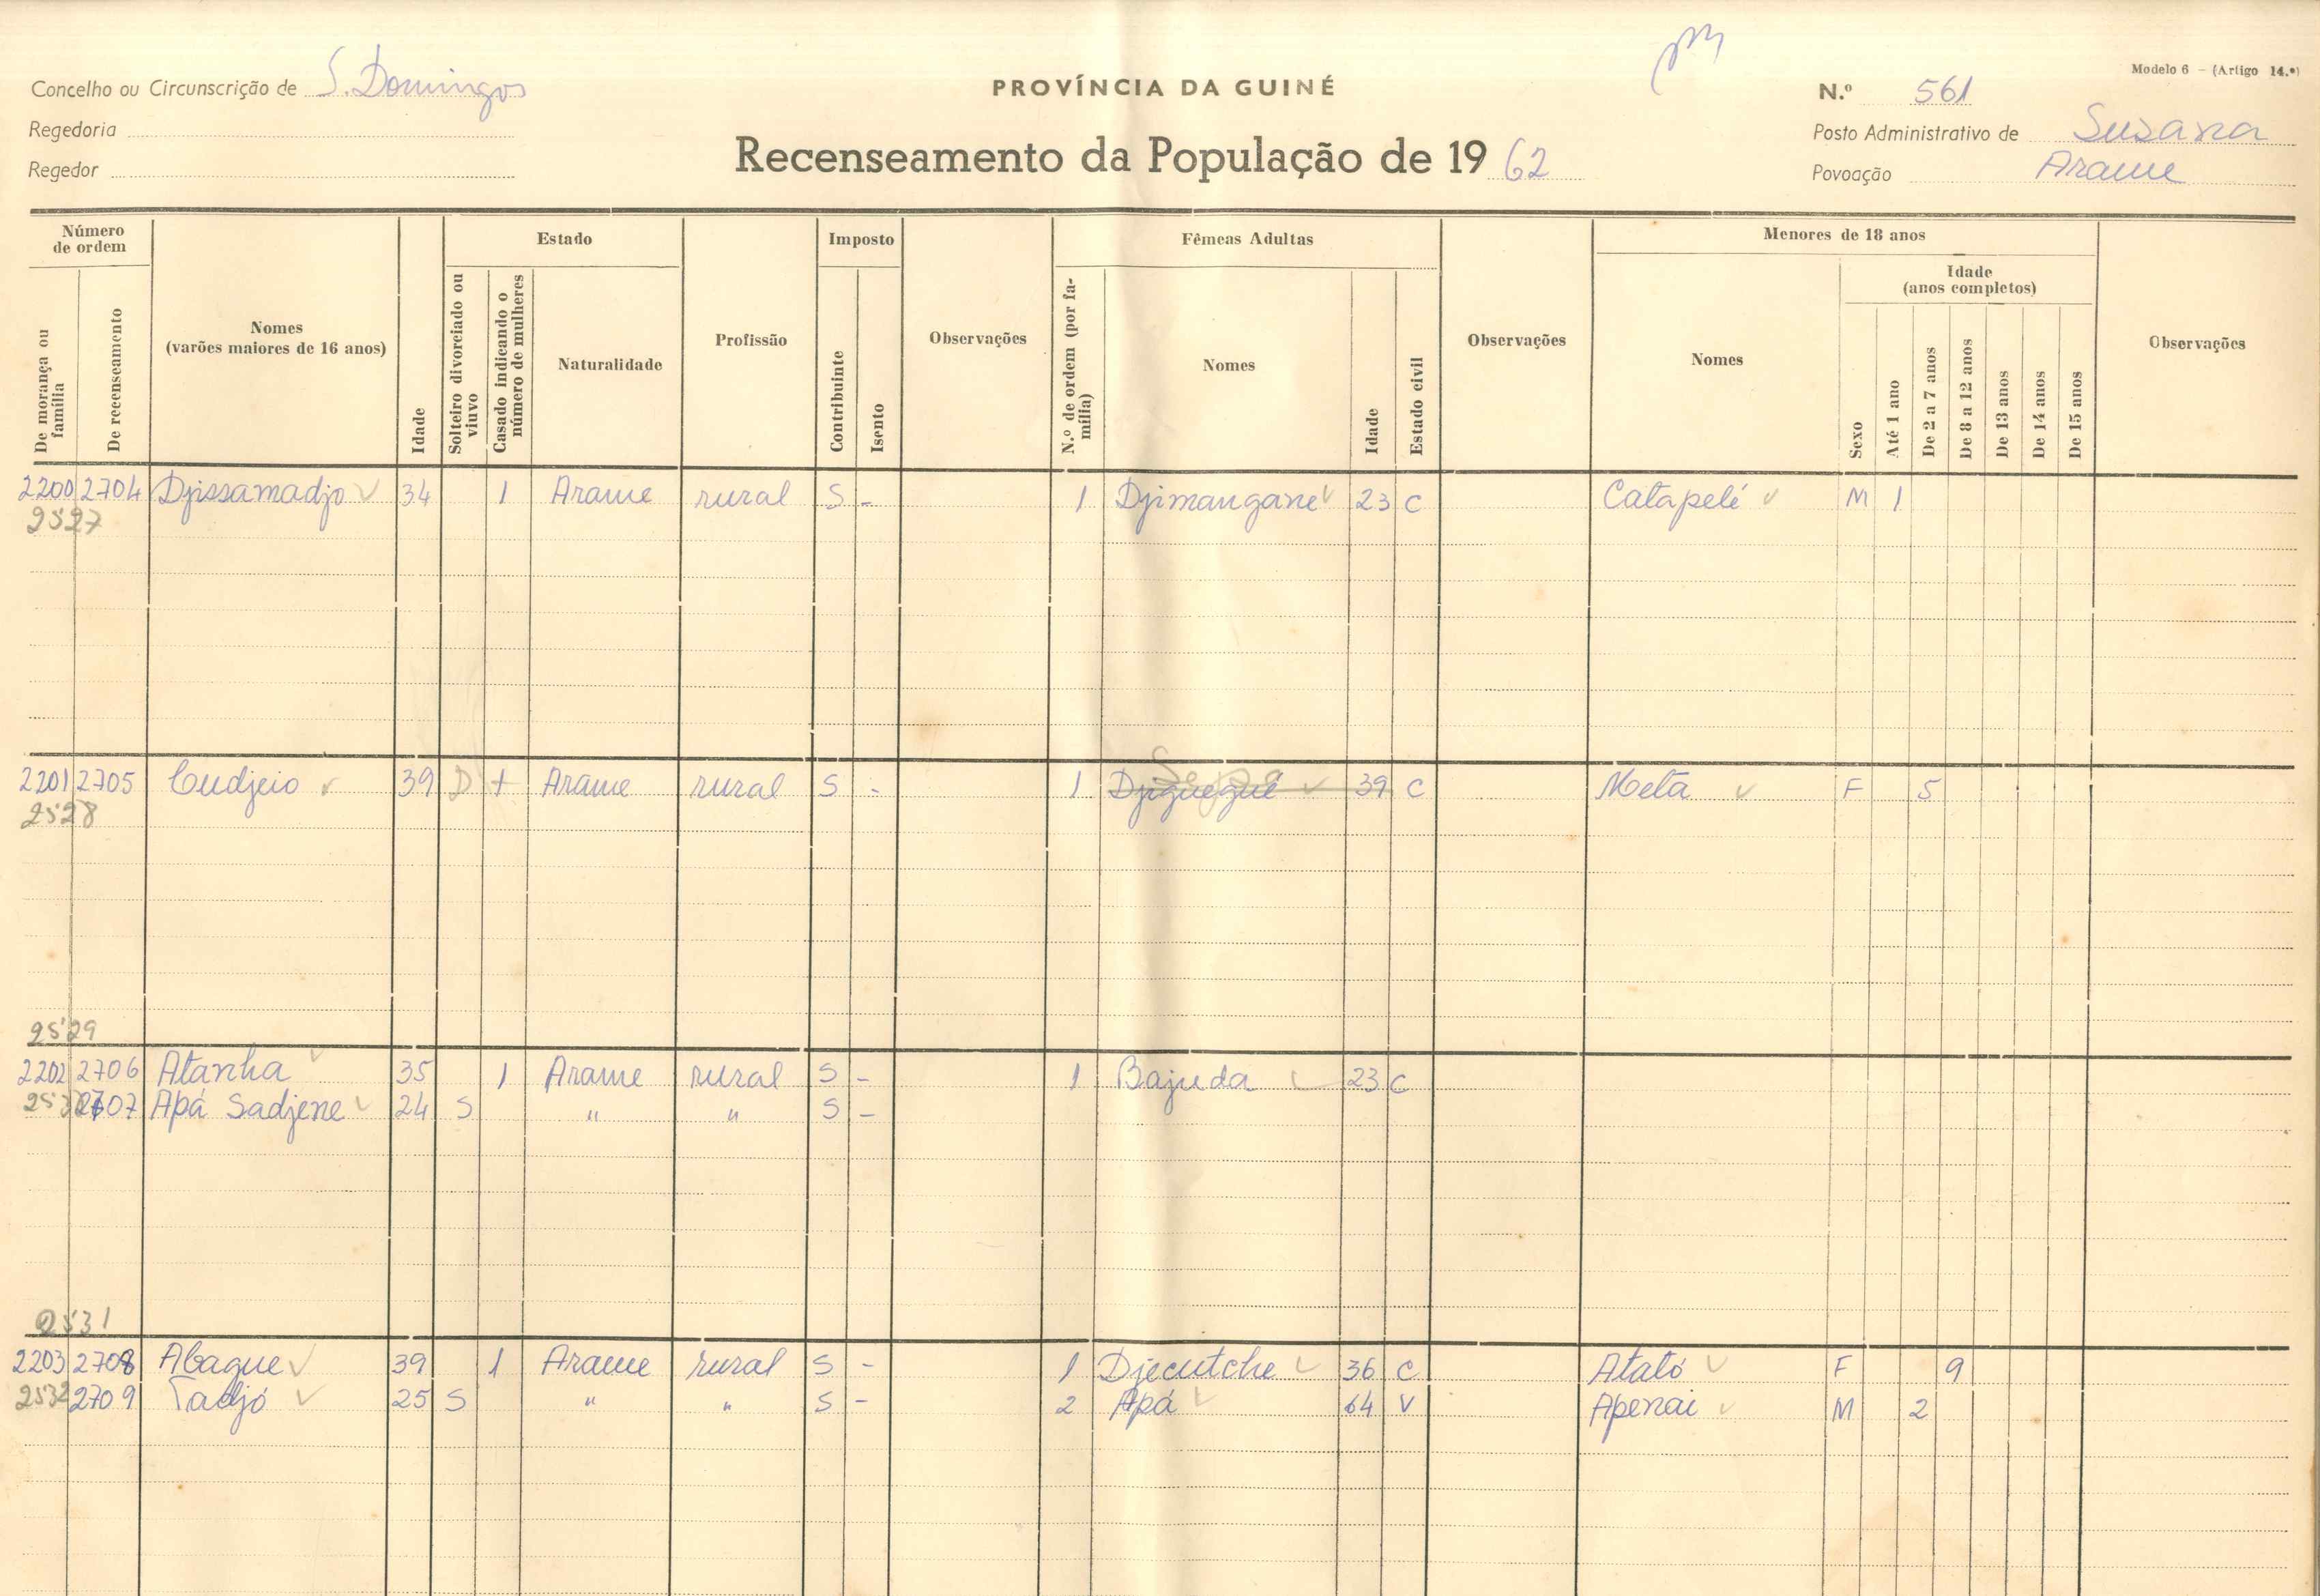 Modelo 6 - (Artigo 14.º)
Concelho ou Circunscrição de S. Domingos
PROVÍNCIA DA GUINÉ
N.º 561
Regedoria
Recenseamento da População de 1962
Posto Administrativo de Susana
Regedor
Povoação Arame
Número de ordem
Estado
Imposto
Fêmeas Adultas
Menores de 18 anos
De morança ou família
De recenseamento
Nomes (varões maiores de 16 anos)
Idade
Solteiro divorciado ou viuvo
Casado indicando o número de mulheres
Naturalidade
Profissão
Contribuinte
Isento
Observações
N.º de ordem (por família)
Nomes
Idade
Estado civil
Observações
Nomes
Sexo
Idade (anos completos)
Até 1 ano
De 2 a 7 anos
De 8 a 12 anos
De 13 anos
De 14 anos
De 15 anos
Observações
2200 2704 Djissamadjo 34 1 Arame rural S - 1 Djimangane 23 C Catapelé M 1
2527
2201 2705 Cudjeio 39 D + Arame rural S - 1 Djiguegué 39 C Meta F 5
2528
2529
2202 2706 Atanha 35 1 Arame rural S - 1 Bajuda 23 C
2707 Apá Sadjene 24 S " " S -
2531
2203 2708 Abague 39 1 Arame rural S - 1 Djecutche 36 C Atató F 9
2532 2709 Tadjó 25 S " " S - 2 Apá 64 V Apenai M 2